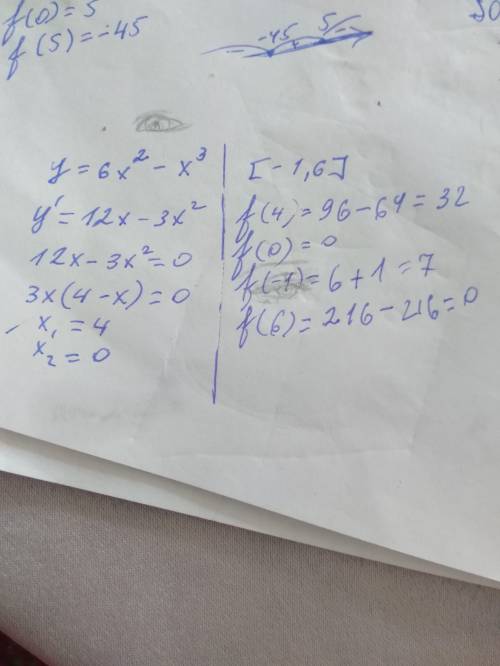 f(0) = 5
f(5) = -45
-45 5
y = 6x² - x³
y' = 12x - 3x²
12x - 3x² = 0
3x(4 - x) = 0
x₁ = 4
x₂ = 0
[-1,6]
f(4) = 96 - 64 = 32
f(0) = 0
f(-1) = 6 + 1 = 7
f(6) = 216 - 216 = 0